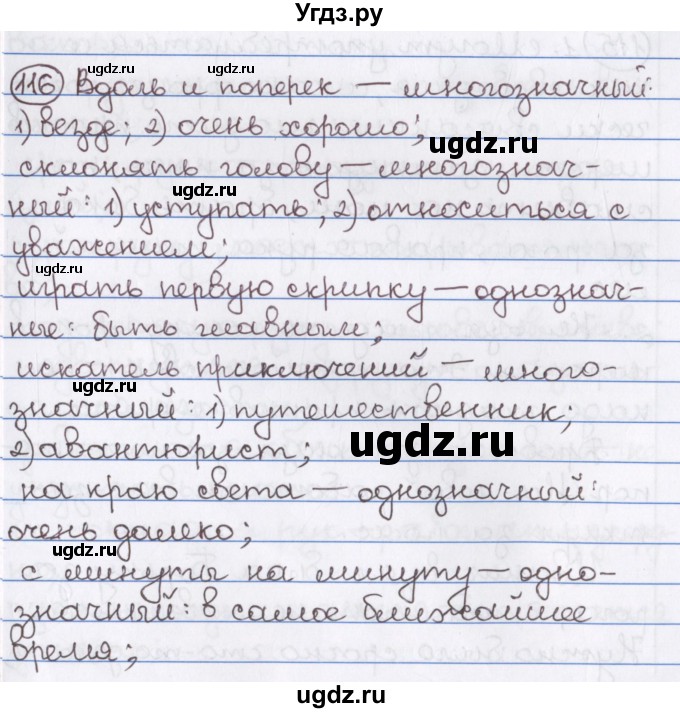 Угдз.ру
116 Вдоль и поперек — многозначный:
1) везде; 2) очень хорошо;
склонять голову — многознач-
ный: 1) уступать; 2) относиться с
уважением;
играть первую скрипку — однознач-
ные: быть главным;
искатель приключений — много-
значный: 1) путешественник;
2) авантюрист;
на краю света — однозначный:
очень далеко;
с минуты на минуту — одно-
значный: в самое ближайшее
время;
ugdz.ru
ugdz.ru
ugdz.ru
ugdz.ru
ugdz.ru
ugdz.ru
ugdz.ru
ugdz.ru
ugdz.ru
ugdz.ru